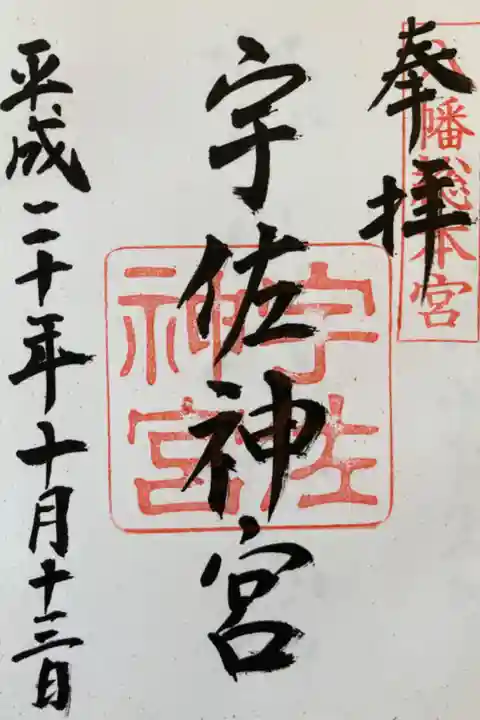 奉拝
八幡總本宮
宇佐神宮
宇佐
神宮
平成二十年十月十三日